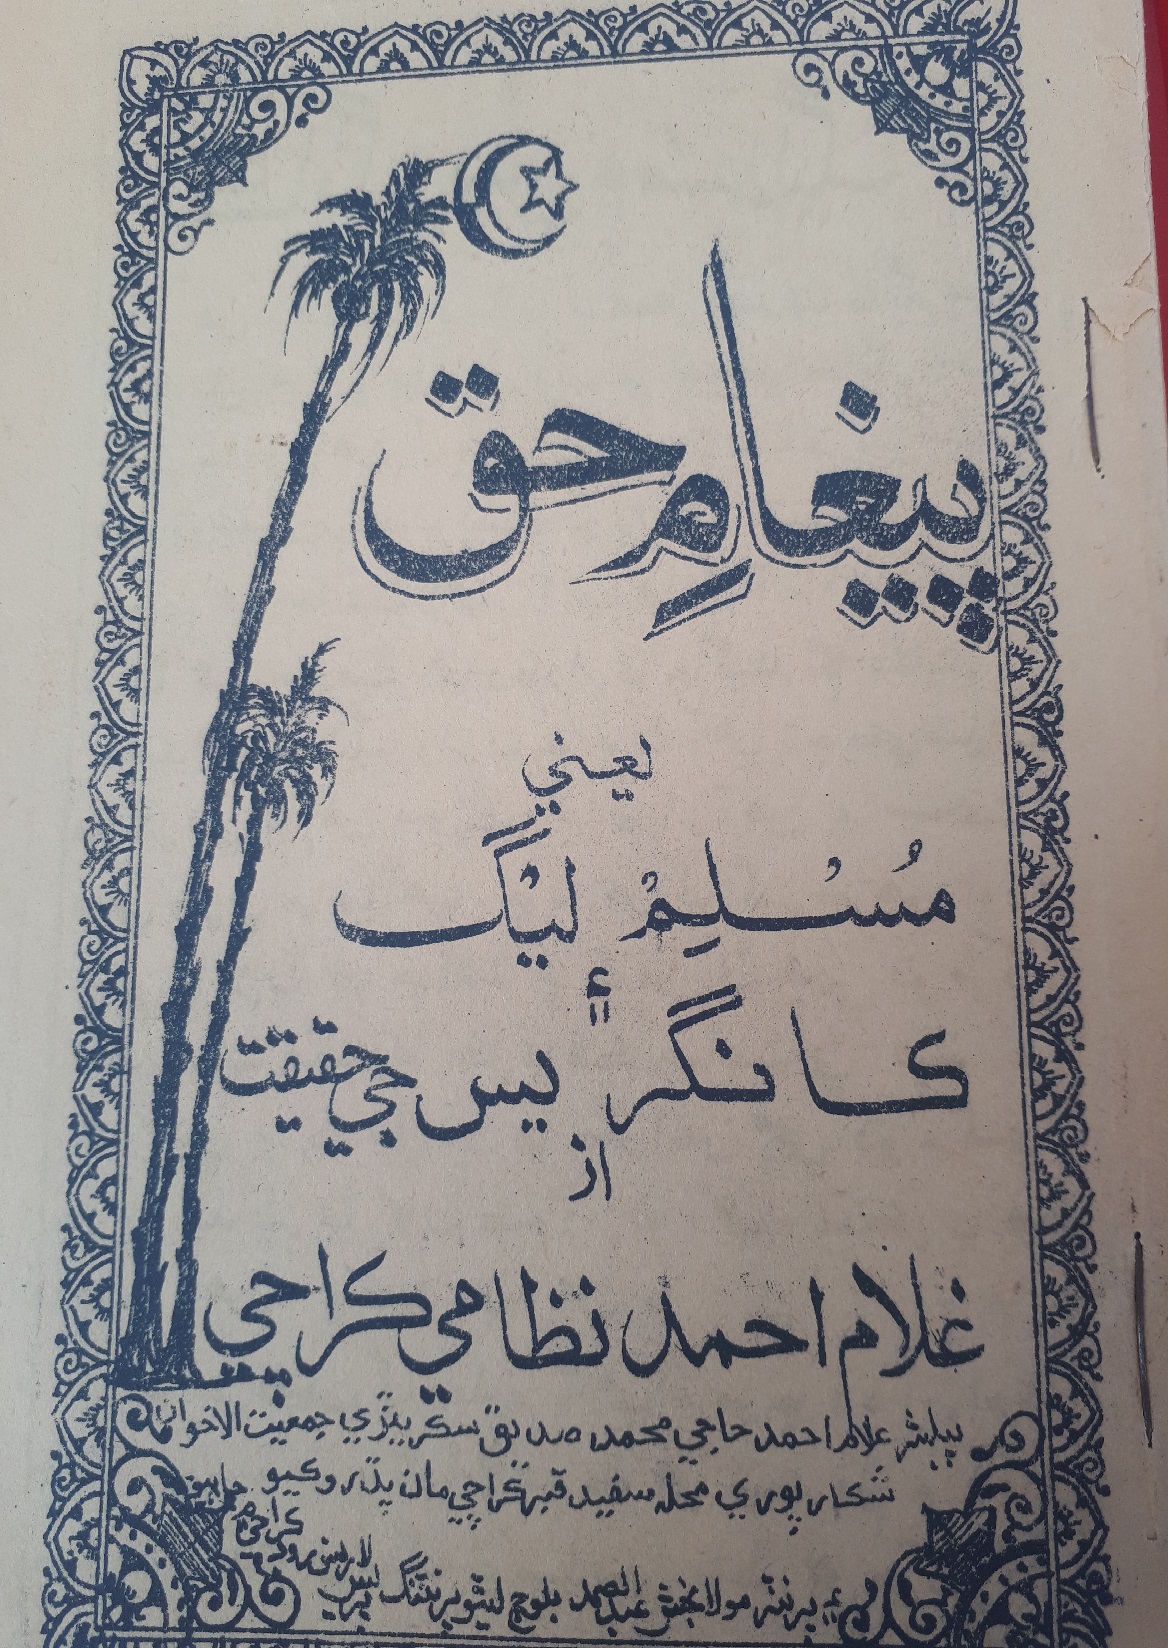 پيغامِ حق
يعني
مُسْلِمْ ليْگ
۽
کانگريس جي حقيقت
از
غلام احمد نظامي ڪراچي
پبلشر غلام احمد حاجي محمد صديق سڪريٽري جمعيت الاخوان
شڪارپوري محله سفيد قبر ڪراچي مان پڌرو ڪيو
پرنٽر مولا بخش عبدالصمد بلوچ ليٿو پرنٽنگ پريس لارينس روڊ ڪراچي